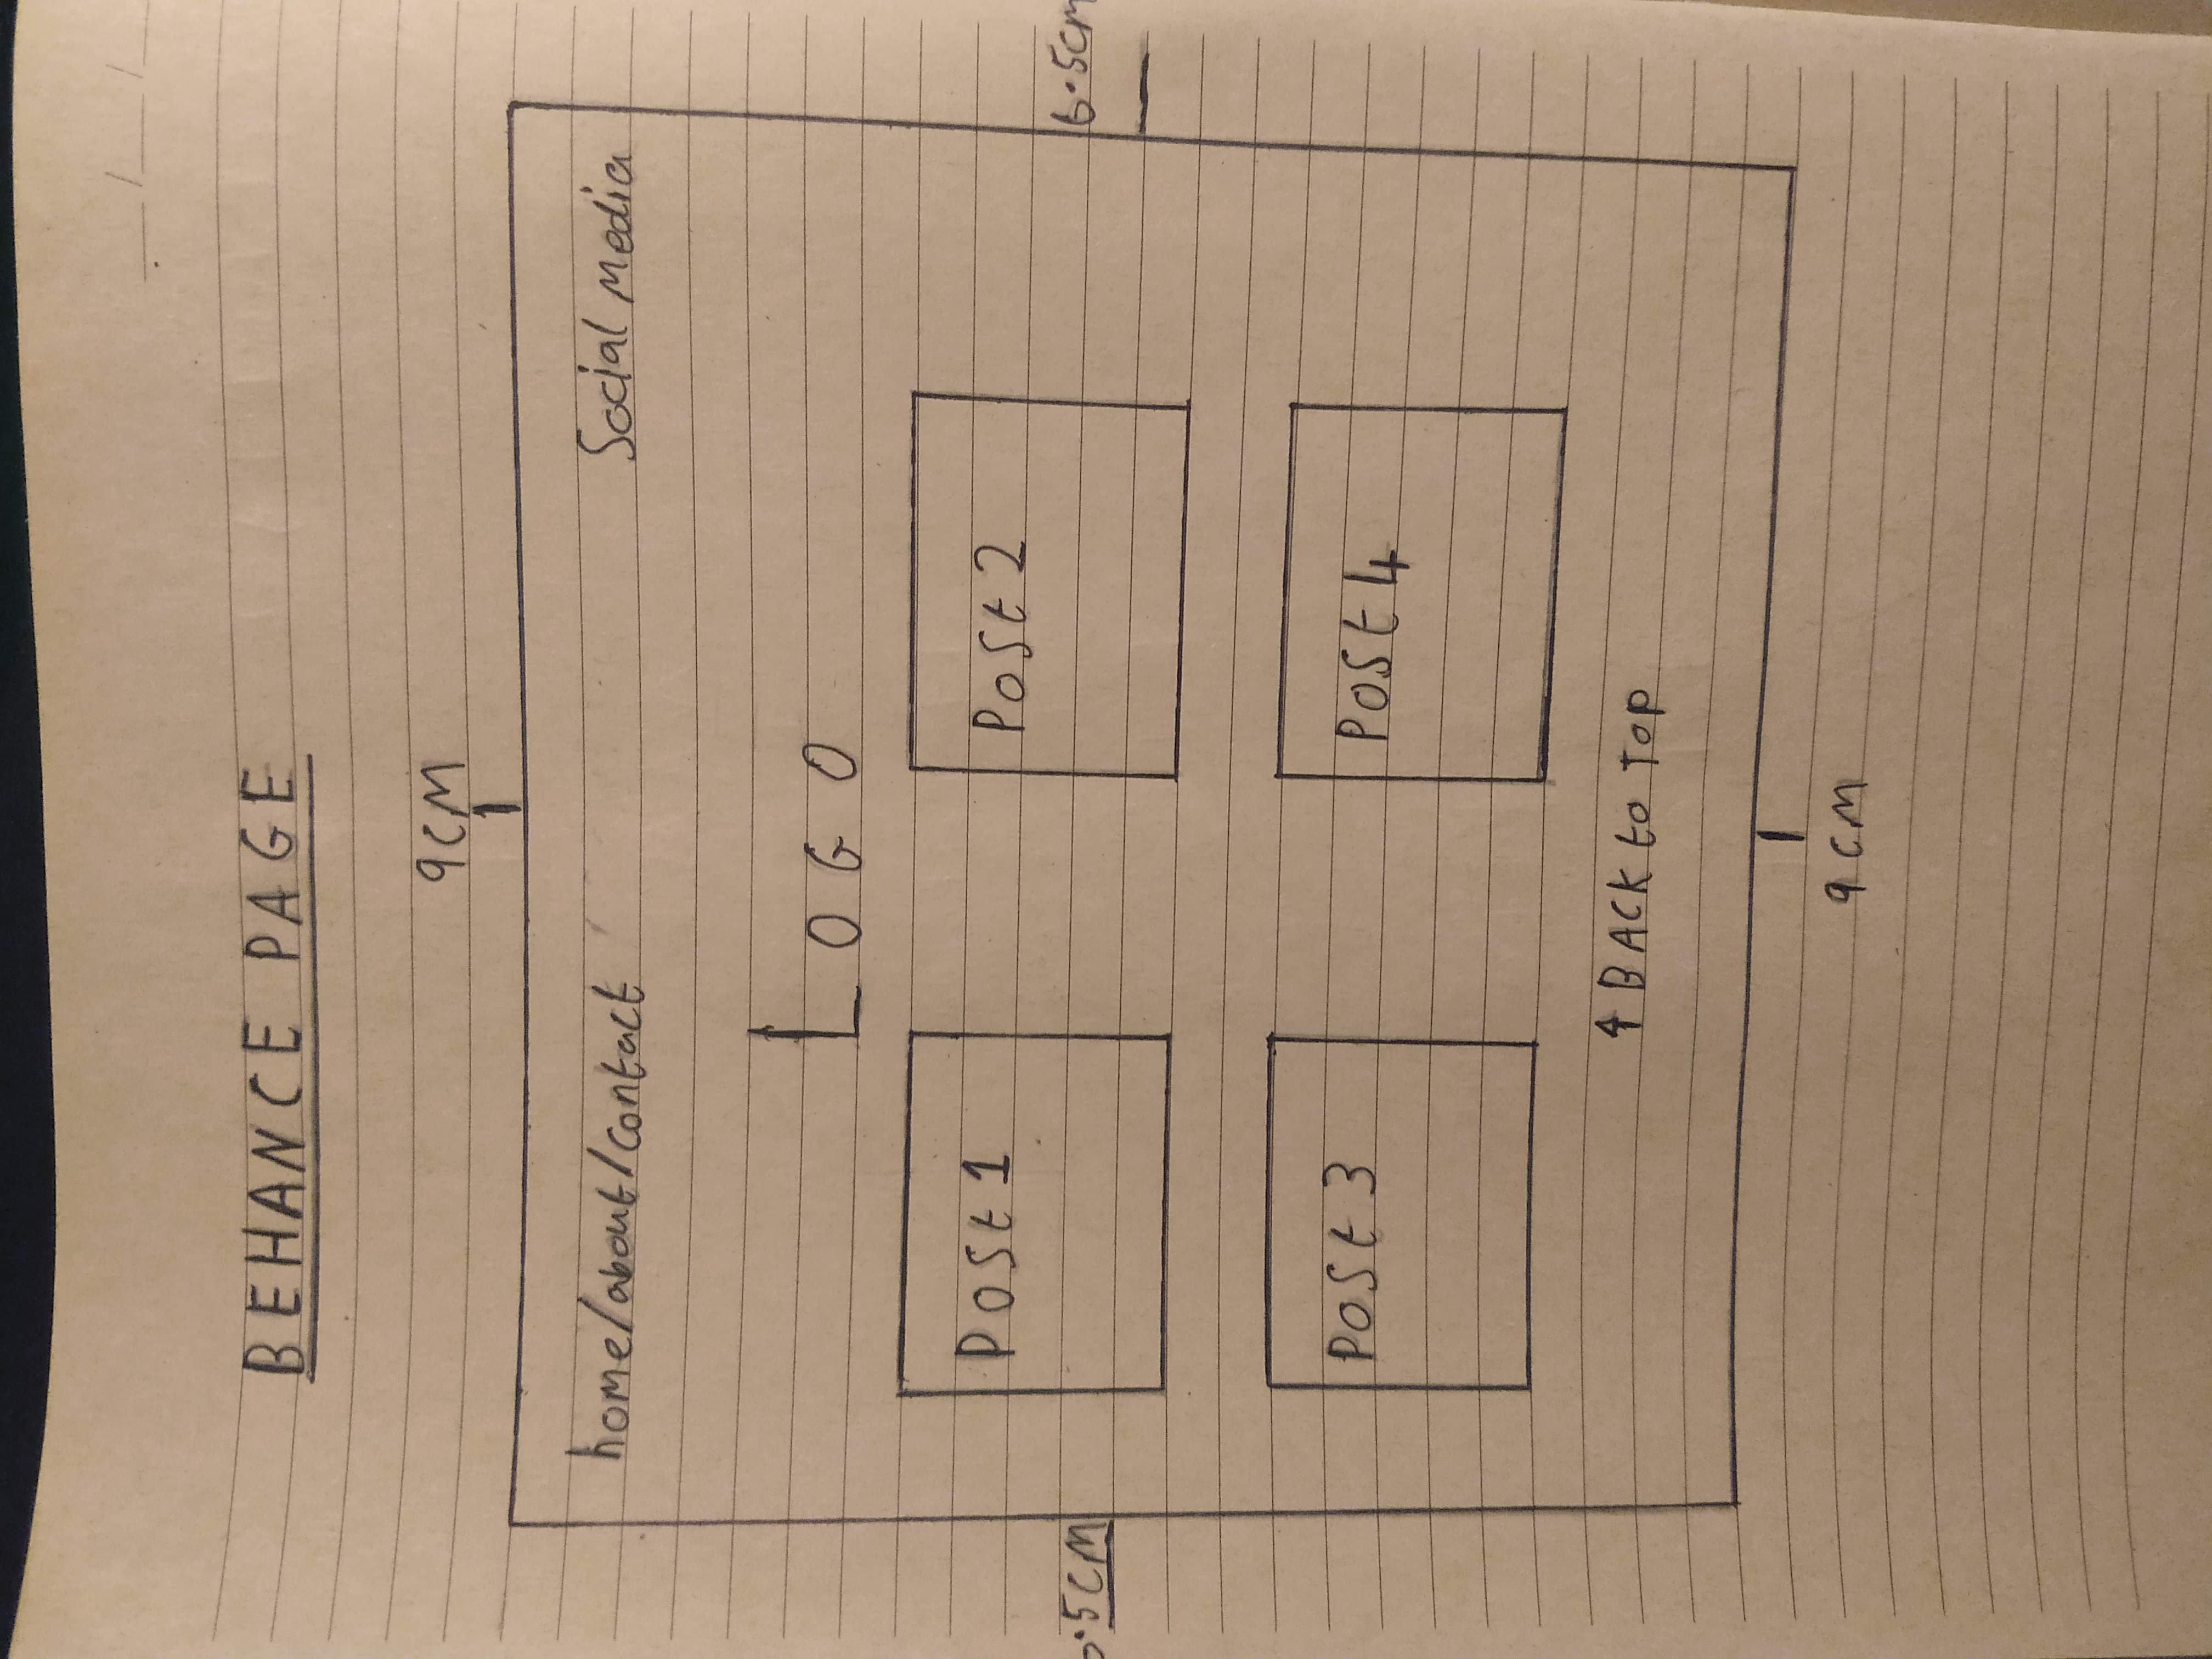 BEHANCE PAGE
9CM
home/about/contact Social Media
LOGO
Post 1 Post 2
.5CM 6.5CM
Post 3 Post 4
↑ BACK to TOP
9CM